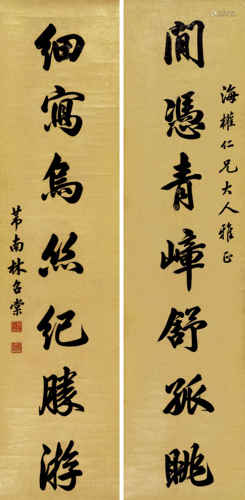 海權仁兄大人雅正
閒憑青嶂舒孤眺
細寫烏絲紀勝游
芾南林召棠